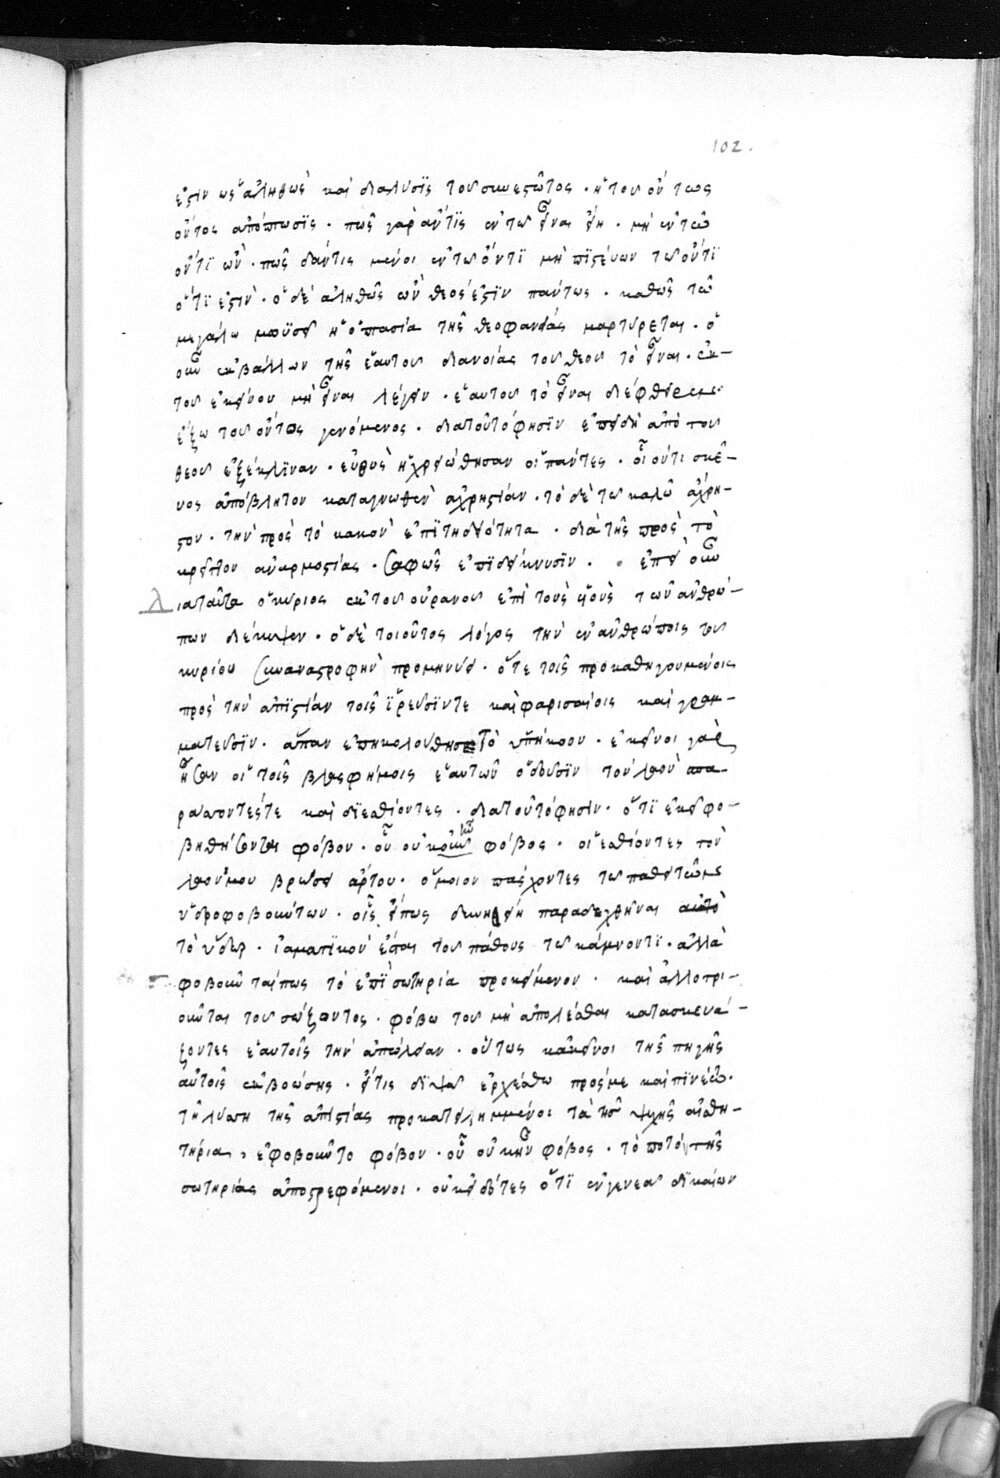 102.
ἐστὶν ὡς ἀληθῶς καὶ διάλυσϊς τοῦ συνεστῶτος · ἡ τοῦ ὄντως
ὄντος ἀπόπτωσϊς · πῶς γὰρ ἄντϊς ἐν τω εἶναι εἴη · μὴ ἐν τῶ
ὄντϊ ὢν · πῶς δάντις μένοι ἐν τω ὄντϊ μὴ πϊστεύων τω ὄντϊ
ὅτϊ ἐστὶν · ὁ δὲ ἀληθῶς ὢν θεός ἐστϊν πάντως · καθῶς τῶ
μεγάλω μωϋσεῖ ἡ ὀπτασία τῆς θεοφανείας μαρτύρεται · ὁ
οὖν ἐκβάλλων τῆς ἑαυτοῦ διανοίας τοῦ θεοῦ τὸ εἶναι · ἐκ-
τοῦ ἐκεῖνον μὴ εἶναι λέγειν · ἑαυτοῦ τὸ εἶναι διέφθειρεν
ἔξω τοῦ ὄντος γενόμενος · διατοῦτό φησϊν ἐπειδὴ ἀπὸ τοῦ
θεοῦ ἐξέκλϊναν · εὐθὺς ἠχρειώθησαν οἱ πάντες · οἷόν τι σκεῦ-
νος ἀπόβλητον καταγνωθὲν ἀχρηστίαν · τὸ δὲ τω καλῶ ἄχρη-
στον · τὴν πρὸς τὸ κακὸν ἐπϊτηδειότητα · διὰ τῆς πρὸς τὸ
κρεῖττον ἀναρμοστίας · σαφῶς ἐπϊδείκνυσϊν · ἐπεὶ οὖν
διαταῦτα ὁ κύριος ἐκ τοῦ οὐρανοῦ ἐπὶ τοὺς υἱοὺς τῶν ἀνθρώ-
πων διέκυψεν · ὁ δὲ τοιοῦτος λόγος τὴν ἐν ἀνθρώποις τοῦ
κυρίου συναναστροφὴν προμηνύει · ὅτε τοῖς προκαθηγουμένοις
πρὸς τὴν ἀπϊστίαν τοῖς ϊἑρεῦσϊν τε καὶ φαρισαίοις καὶ γραμ-
ματεῦσϊν · ἅπαν ἐπηκολούθησε τὸ ὑπήκοον · ἐκεῖνοι γὰρ
ἦσαν οἱ τοῖς βλασφήμοις ἑαυτῶν ὀδοῦσϊν τὸν λαὸν σπα-
ράσσοντές τε καὶ διεσθίοντες · διατοῦτό φησϊν · ὅτϊ ἐκεῖ ἐφο-
βηθήσονται φόβον · οὗ οὐκ ἦν φόβος · οἱ ἐσθίοντες τὸν
λαόν μου βρώσει ἄρτου · ὅμοιον πάσχοντες τω πάθει τῶν
ὑδροφοβούντων · οἷς εἴπως δεινὴ εἴη παραδεχθῆναι
τὸ ὕδωρ · ϊαματϊκὸν ἔσται τοῦ πάθους τω κάμνοντϊ · ἀλλὰ
φοβοῦνταί πως τὸ ἐπὶ σωτηρία προκείμενον · καὶ ἀλλοτρι-
οῦνται τοῦ σώζοντος · φόβω τοῦ μὴ ἀπολέσθαι κατασκευά-
ζοντες ἑαυτοῖς τὴν ἀπώλειαν · οὕτως κἀκεῖνοι τῆς πηγῆς
αὐτοῖς ἐκβοώσης · εἴτις διψᾶ ἐρχέσθω πρός με καὶ πϊνέτω ·
τῆ λύσση τῆς ἀπϊστίας προκατειλημμένοι τὰ τῆς ψυχῆς αἰσθη-
τήρια · ἐφοβοῦντο φόβον · οὗ οὐκ ἦν φόβος · τὸ ποτὸν τῆς
σωτηρίας ἀποστρεφόμενοι · οὐκ εἰδότες ὅτϊ ἐν γενεᾶ δϊκαίων